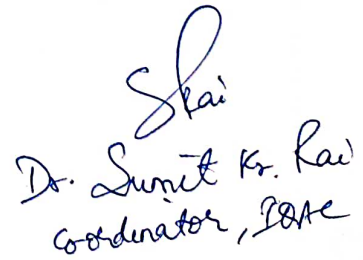 SRai
Dr. Sumit Kr. Rai
Co-ordinator, IQAC